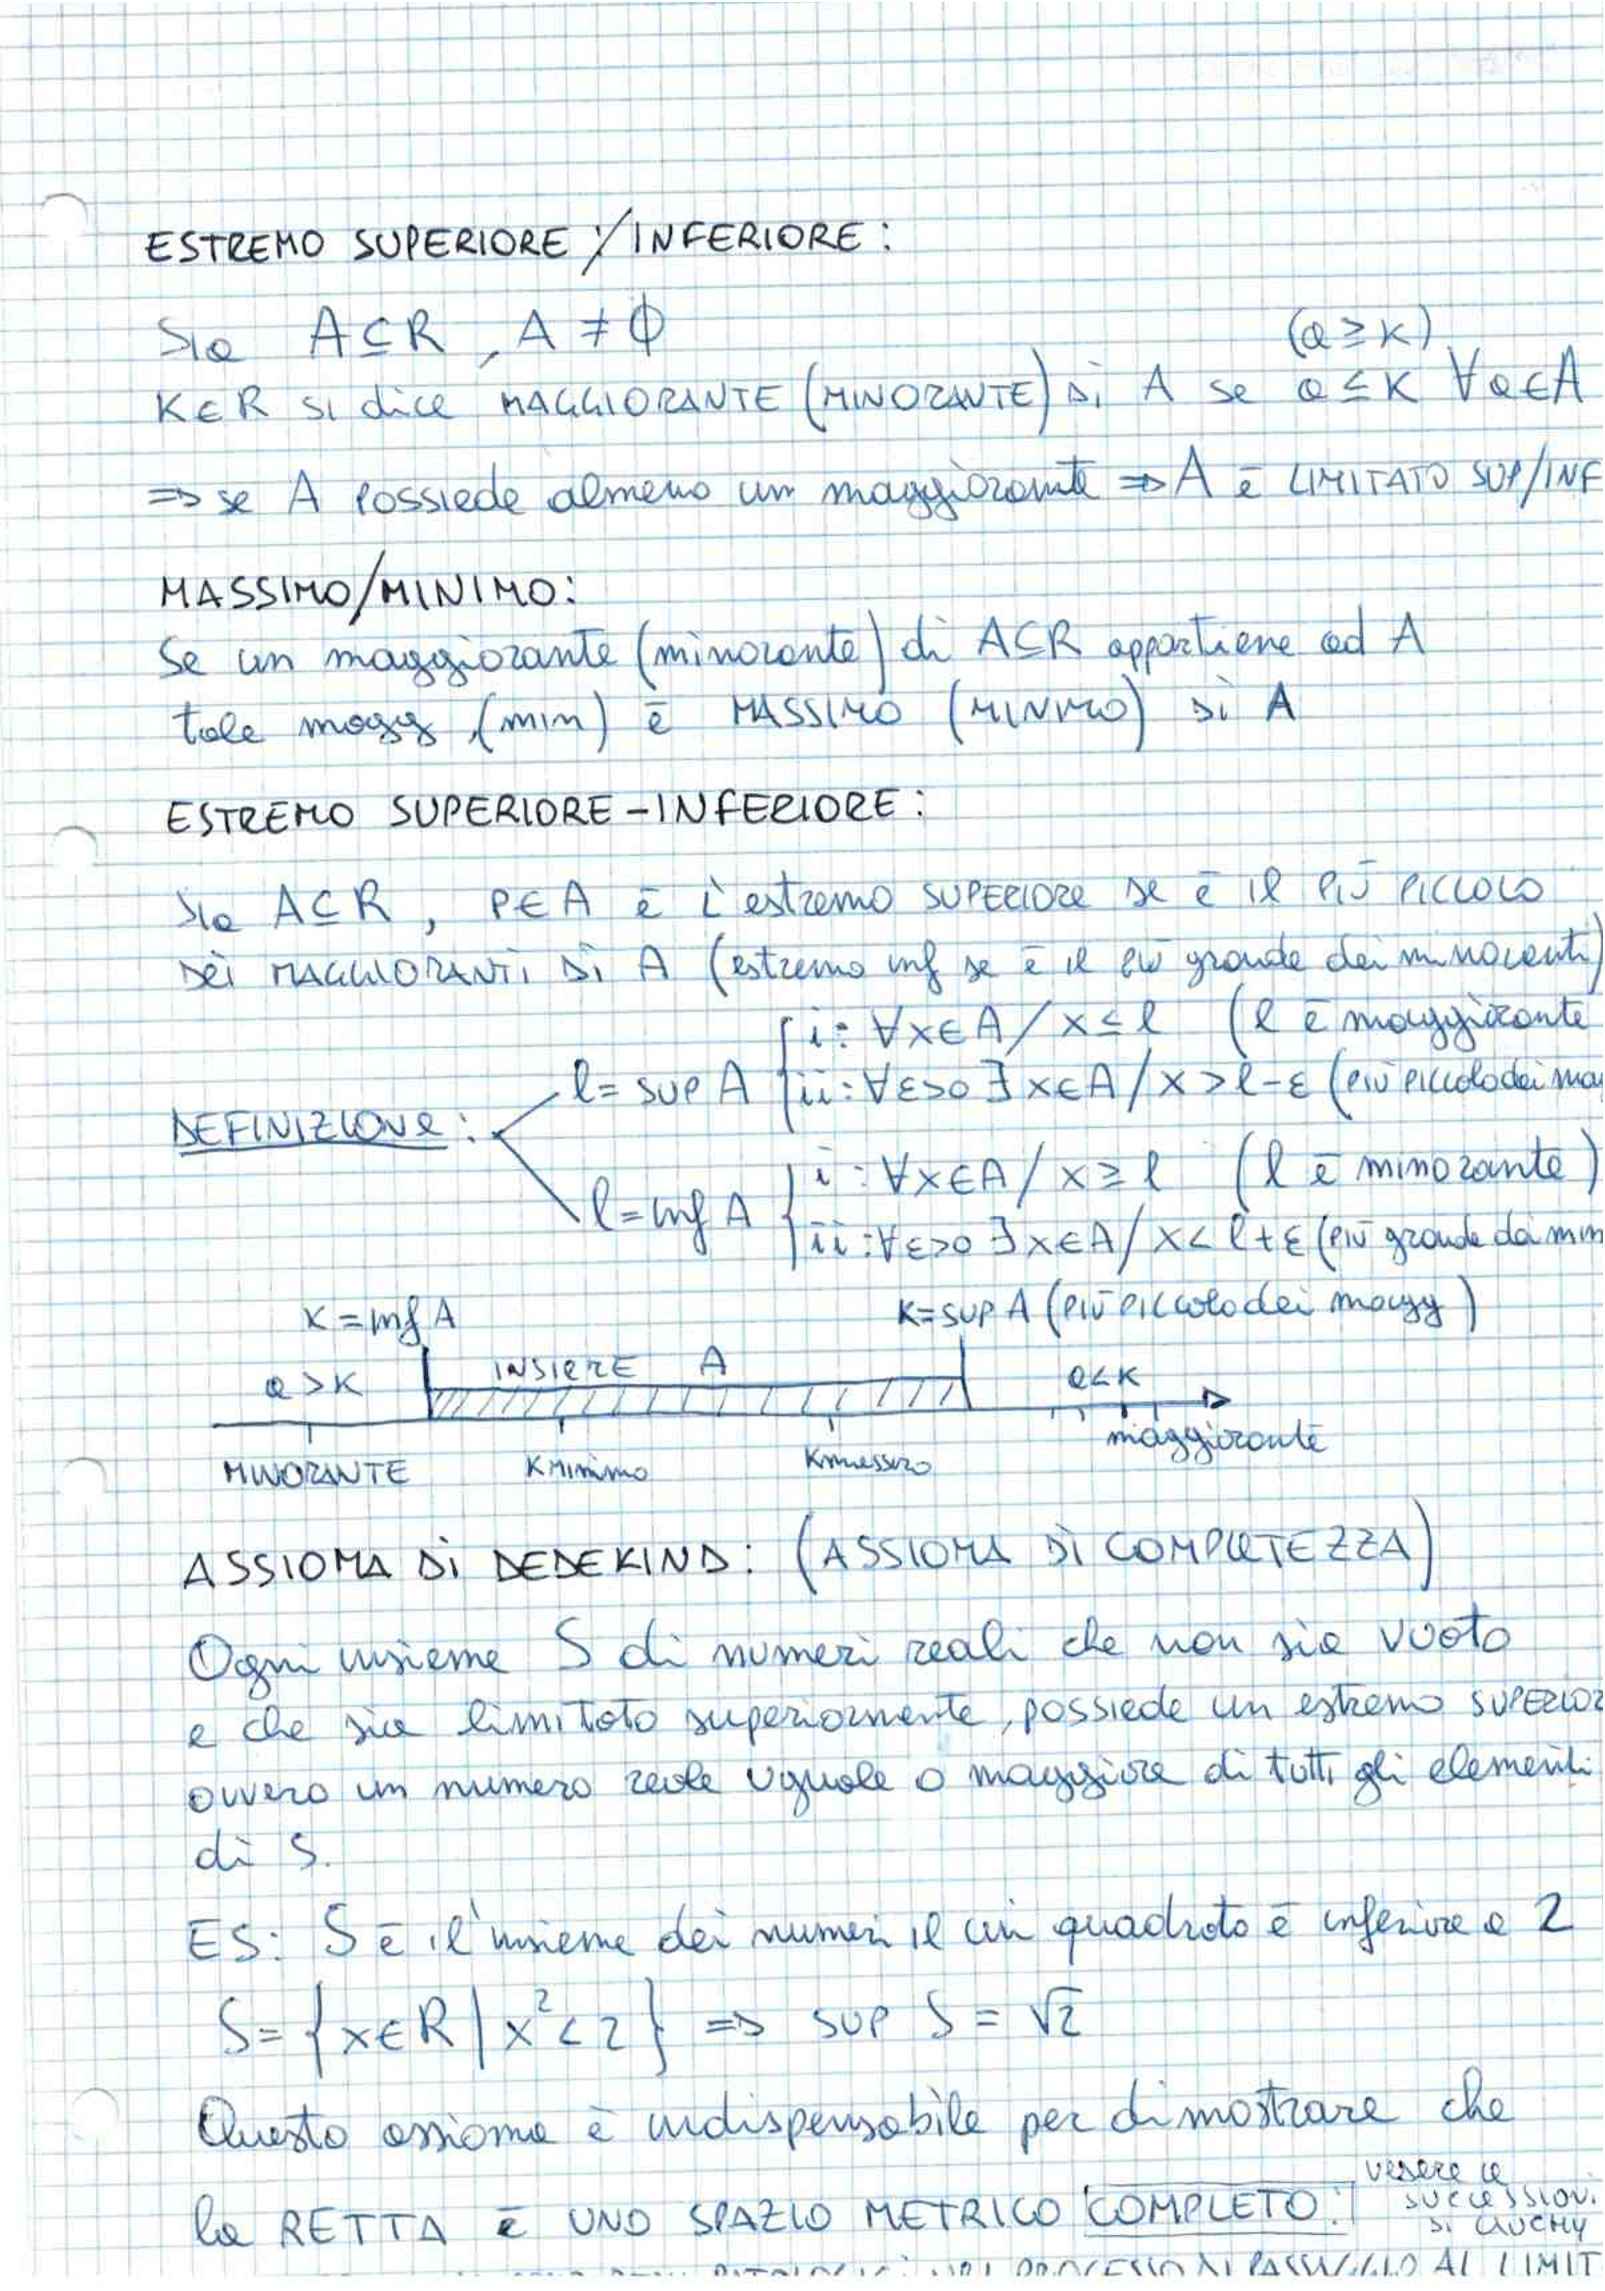 ESTREMO SUPERIORE / INFERIORE:
Sia A⊆R, A ≠ ∅
(a ≥ K)
K∈R si dice MAGGIORANTE (MINORANTE) di A se a ≤ K ∀a∈A
⇒ se A possiede almeno un maggiorante ⇒ A è LIMITATO SUP/INF
MASSIMO/MINIMO:
Se un maggiorante (minorante) di A⊆R appartiene ad A
tale magg (min) è MASSIMO (MINIMO) di A
ESTREMO SUPERIORE-INFERIORE:
Sia A⊆R, P∈A è l'estremo SUPERIORE se è il più PICCOLO
dei MAGGIORANTI di A (estremo inf se è il più grande dei minoranti)
i: ∀x∈A / x≤l (l è maggiorante
l= SUP A
ii: ∀ε>0 ∃x∈A / x>l-ε (più piccolo dei mag
DEFINIZIONE:
i: ∀x∈A / x≥l (l è minorante)
l=inf A
ii: ∀ε>0 ∃x∈A / x<l+ε (più grande dei min
K=inf A K=SUP A (più piccolo dei magg)
a>K INSIEME A a<K
MINORANTE K minimo K massimo maggiorante
ASSIOMA DI DEDEKIND: (ASSIOMA DI COMPLETEZZA)
Ogni insieme S di numeri reali che non sia vuoto
e che sia limitato superiormente, possiede un estremo SUPERIOR
ovvero un numero reale uguale o maggiore di tutti gli elementi
di S.
ES: S è l'insieme dei numeri il cui quadrato è inferiore a 2
S={x∈R | x²<2} ⇒ SUP S = √2
Questo assioma è indispensabile per dimostrare che
la RETTA è UNO SPAZIO METRICO COMPLETO.
vedere le
successioni
di CAUCHY
PROCESSO DI PASSAGGIO AL LIMIT